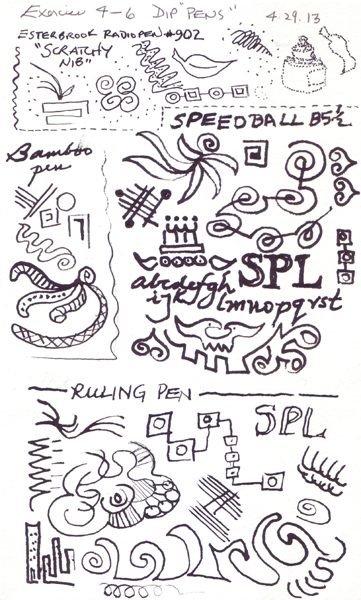 Exercise 4-6 Dip "Pens" 4.29.13
ESTERBROOK RADIO PEN #902
"SCRATCHY
NIB"
SPEEDBALL B5½
Bamboo
pen
SPL
abcdefgh
ijk lmnopqrst
RULING PEN
SPL